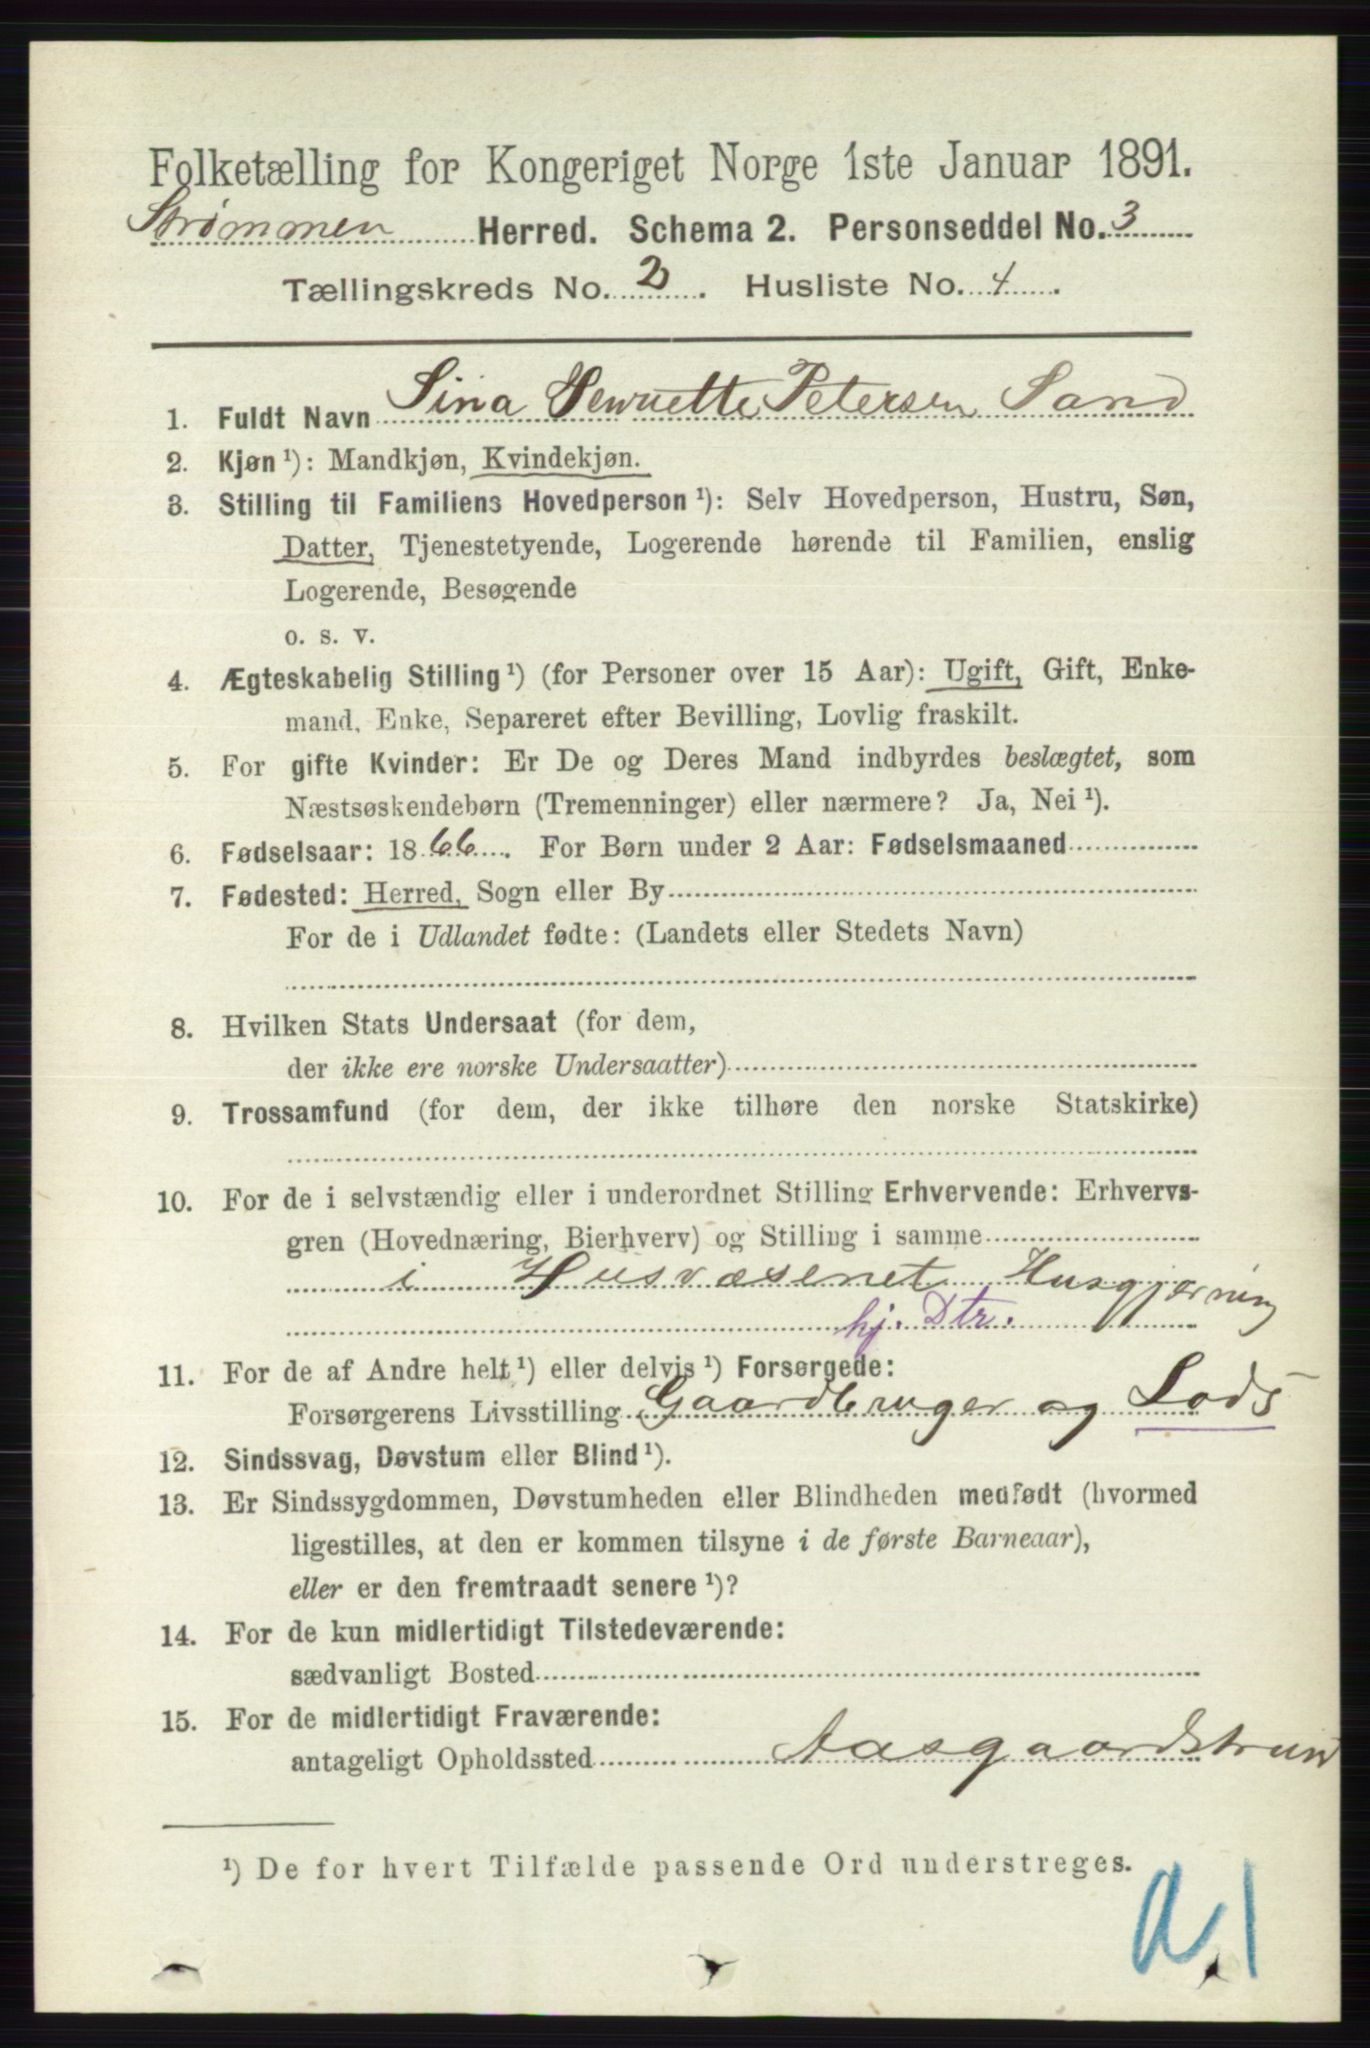 Folketælling for Kongeriget Norge 1ste Januar 1891.
Strømmen Herred. Schema 2. Personseddel No. 3
Tællingskreds No. 2. Husliste No. 4.
1. Fuldt Navn Sina Henriette Petersen Sand
2. Kjøn ¹): Mandkjøn, Kvindekjøn.
3. Stilling til Familiens Hovedperson ¹): Selv Hovedperson, Hustru, Søn,
Datter, Tjenestetyende, Logerende hørende til Familien, enslig
Logerende, Besøgende
o. s. v.
4. Ægteskabelig Stilling ¹) (for Personer over 15 Aar): Ugift, Gift, Enke-
mand, Enke, Separeret efter Bevilling, Lovlig fraskilt.
5. For gifte Kvinder: Er De og Deres Mand indbyrdes beslægtet, som
Næstsøskendebørn (Tremenninger) eller nærmere? Ja, Nei ¹).
6. Fødselsaar: 1866. For Børn under 2 Aar: Fødselsmaaned
7. Fødested: Herred, Sogn eller By
For de i Udlandet fødte: (Landets eller Stedets Navn)
8. Hvilken Stats Undersaat (for dem,
der ikke ere norske Undersaatter)
9. Trossamfund (for dem, der ikke tilhøre den norske Statskirke)
10. For de i selvstændig eller i underordnet Stilling Erhvervende: Erhvervs-
gren (Hovednæring, Bierhverv) og Stilling i samme
i Husvæsenet Husgjerning
hj. Dtr.
11. For de af Andre helt ¹) eller delvis ¹) Forsørgede:
Forsørgerens Livsstilling Gaardbruger og Lods
12. Sindssvag, Døvstum eller Blind ¹).
13. Er Sindssygdommen, Døvstumheden eller Blindheden medfødt (hvormed
ligestilles, at den er kommen tilsyne i de første Barneaar),
eller er den fremtraadt senere ¹)?
14. For de kun midlertidigt Tilstedeværende:
sædvanligt Bosted
15. For de midlertidigt Fraværende:
antageligt Opholdssted Aasgaardstran
¹) De for hvert Tilfælde passende Ord understreges.
a. 1